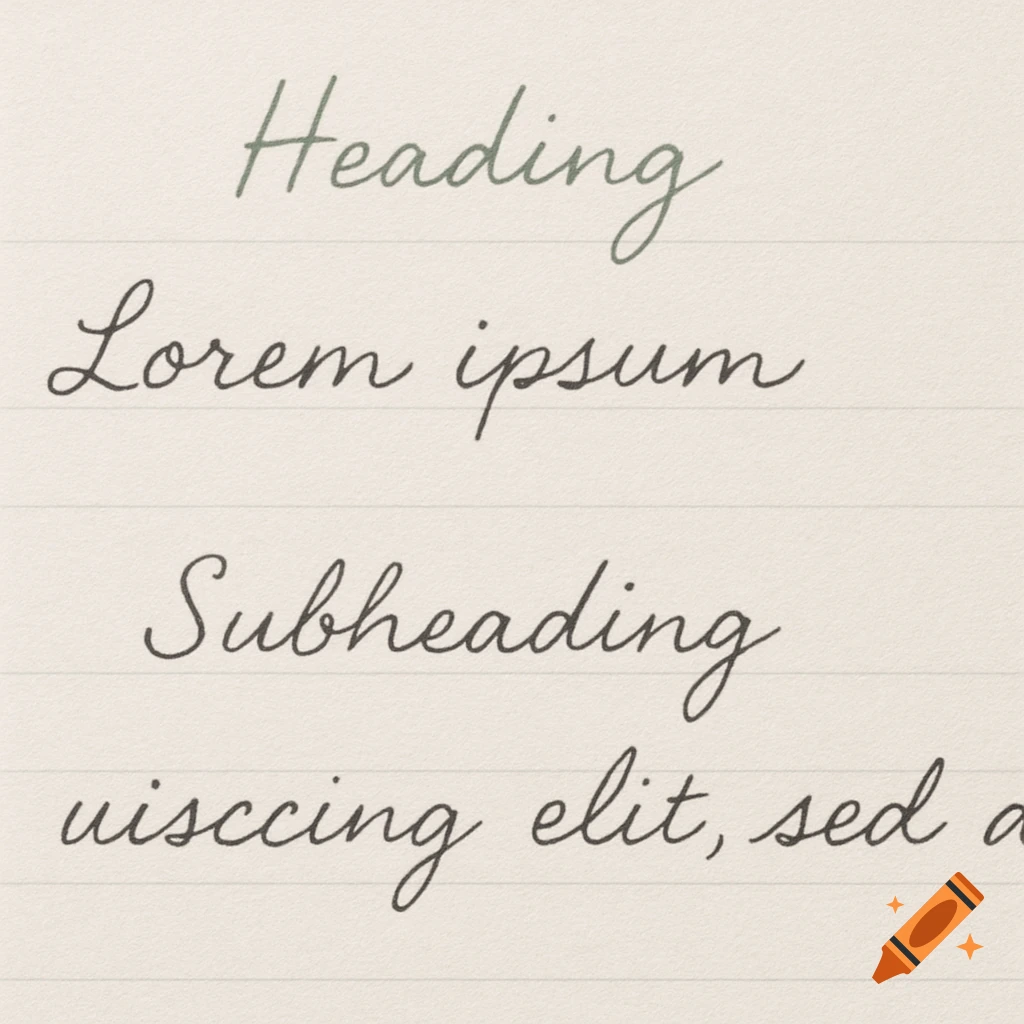 Heading
Lorem ipsum
Subheading
uisccing elit, sed